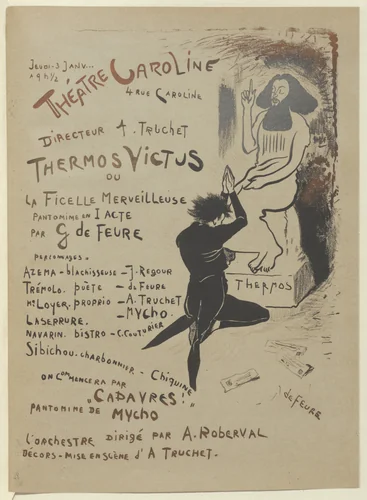 Jeudi 3 Janv...
à 9h 1/2
Théâtre Caroline
4 rue Caroline
Directeur A. Truchet
Thermos Victus
ou
la Ficelle Merveilleuse
Pantomime en 1 acte
par G de Feure
personnages.
Azema - blachisseuse - J. Redour
Trémolo. poète - de Feure
Mr Loyer. proprio - A. Truchet
Laserrure. - Mycho.
Navarin. bistro - C. Couturier
Sibichou. charbonnier - Chiquine
on Commencera par
"Cadavres!"
pantomime de Mycho
l'orchestre dirigé par A. Roberval
Décors - mise en scène d'A Truchet.
Thermos
de Feure